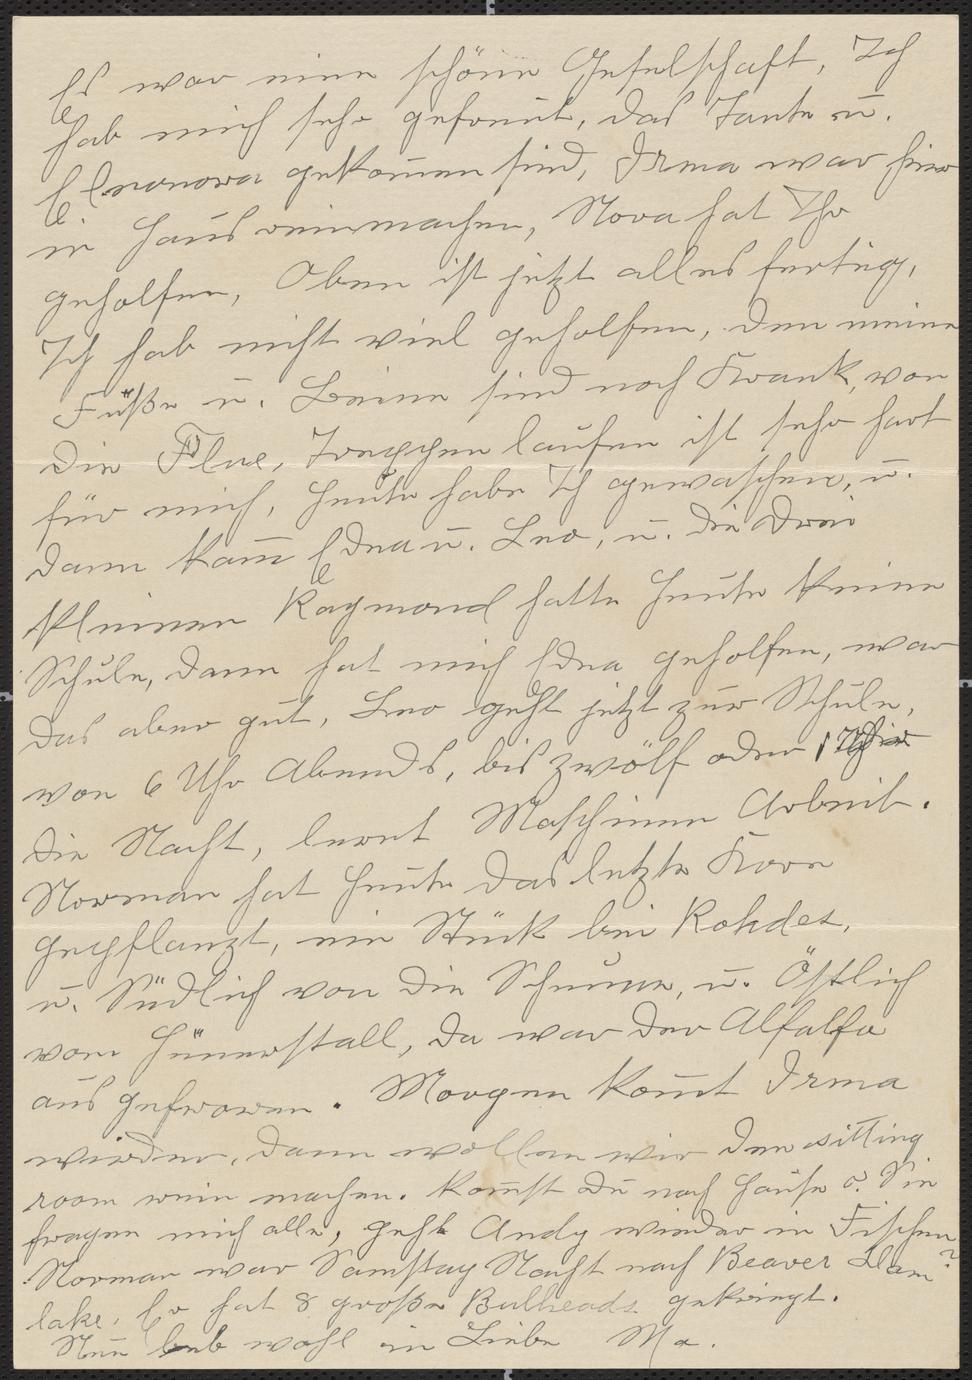 Es war eine schöne Geselschaft, Ich
hab mich sehr gefreut, das Tante u.
Elenonora gekomen sind, Irma war hier
in Haus reinmachen, Nora hat Ihr
geholfen, Oben ist jetzt alles fertig,
Ich hab nicht viel geholfen, den meine
Füße u. Beine sind noch Krank, von
die Flue, Treppen laufen ist sehr hart
für mich, Heute habe Ich gewaschen, u.
dann kam Edna u. Leo, u. die Drei
Kleinen Raymond hatte Heute keine
Schule, dann hat mich Edna geholfen, war
das aber gut, Leo geht jetzt zur Schule,
von 6 Uhr Abends, bis zwölf oder 1
die Nacht, lernt Maschinen Arbeit.
Norman hat Heute das letzte Korn
gepflanzt, ein Stück bei Rohdes,
u. Südlich von die Scheune, u. Östlich
vom Hünerstall, da war der Alfalfa
aus gefroren. Morgen komt Irma
wieder, dann wollen wir den sitting
room rein machen. Komst du nach Hause o. Sie
fragen mich alle, geht Andy wieder in Fischen?
Norman war Samstag Nacht nach Beaver Dam
lake, Er hat 8 große Bullheads gekriegt.
Nun leb wohl in Liebe Ma.